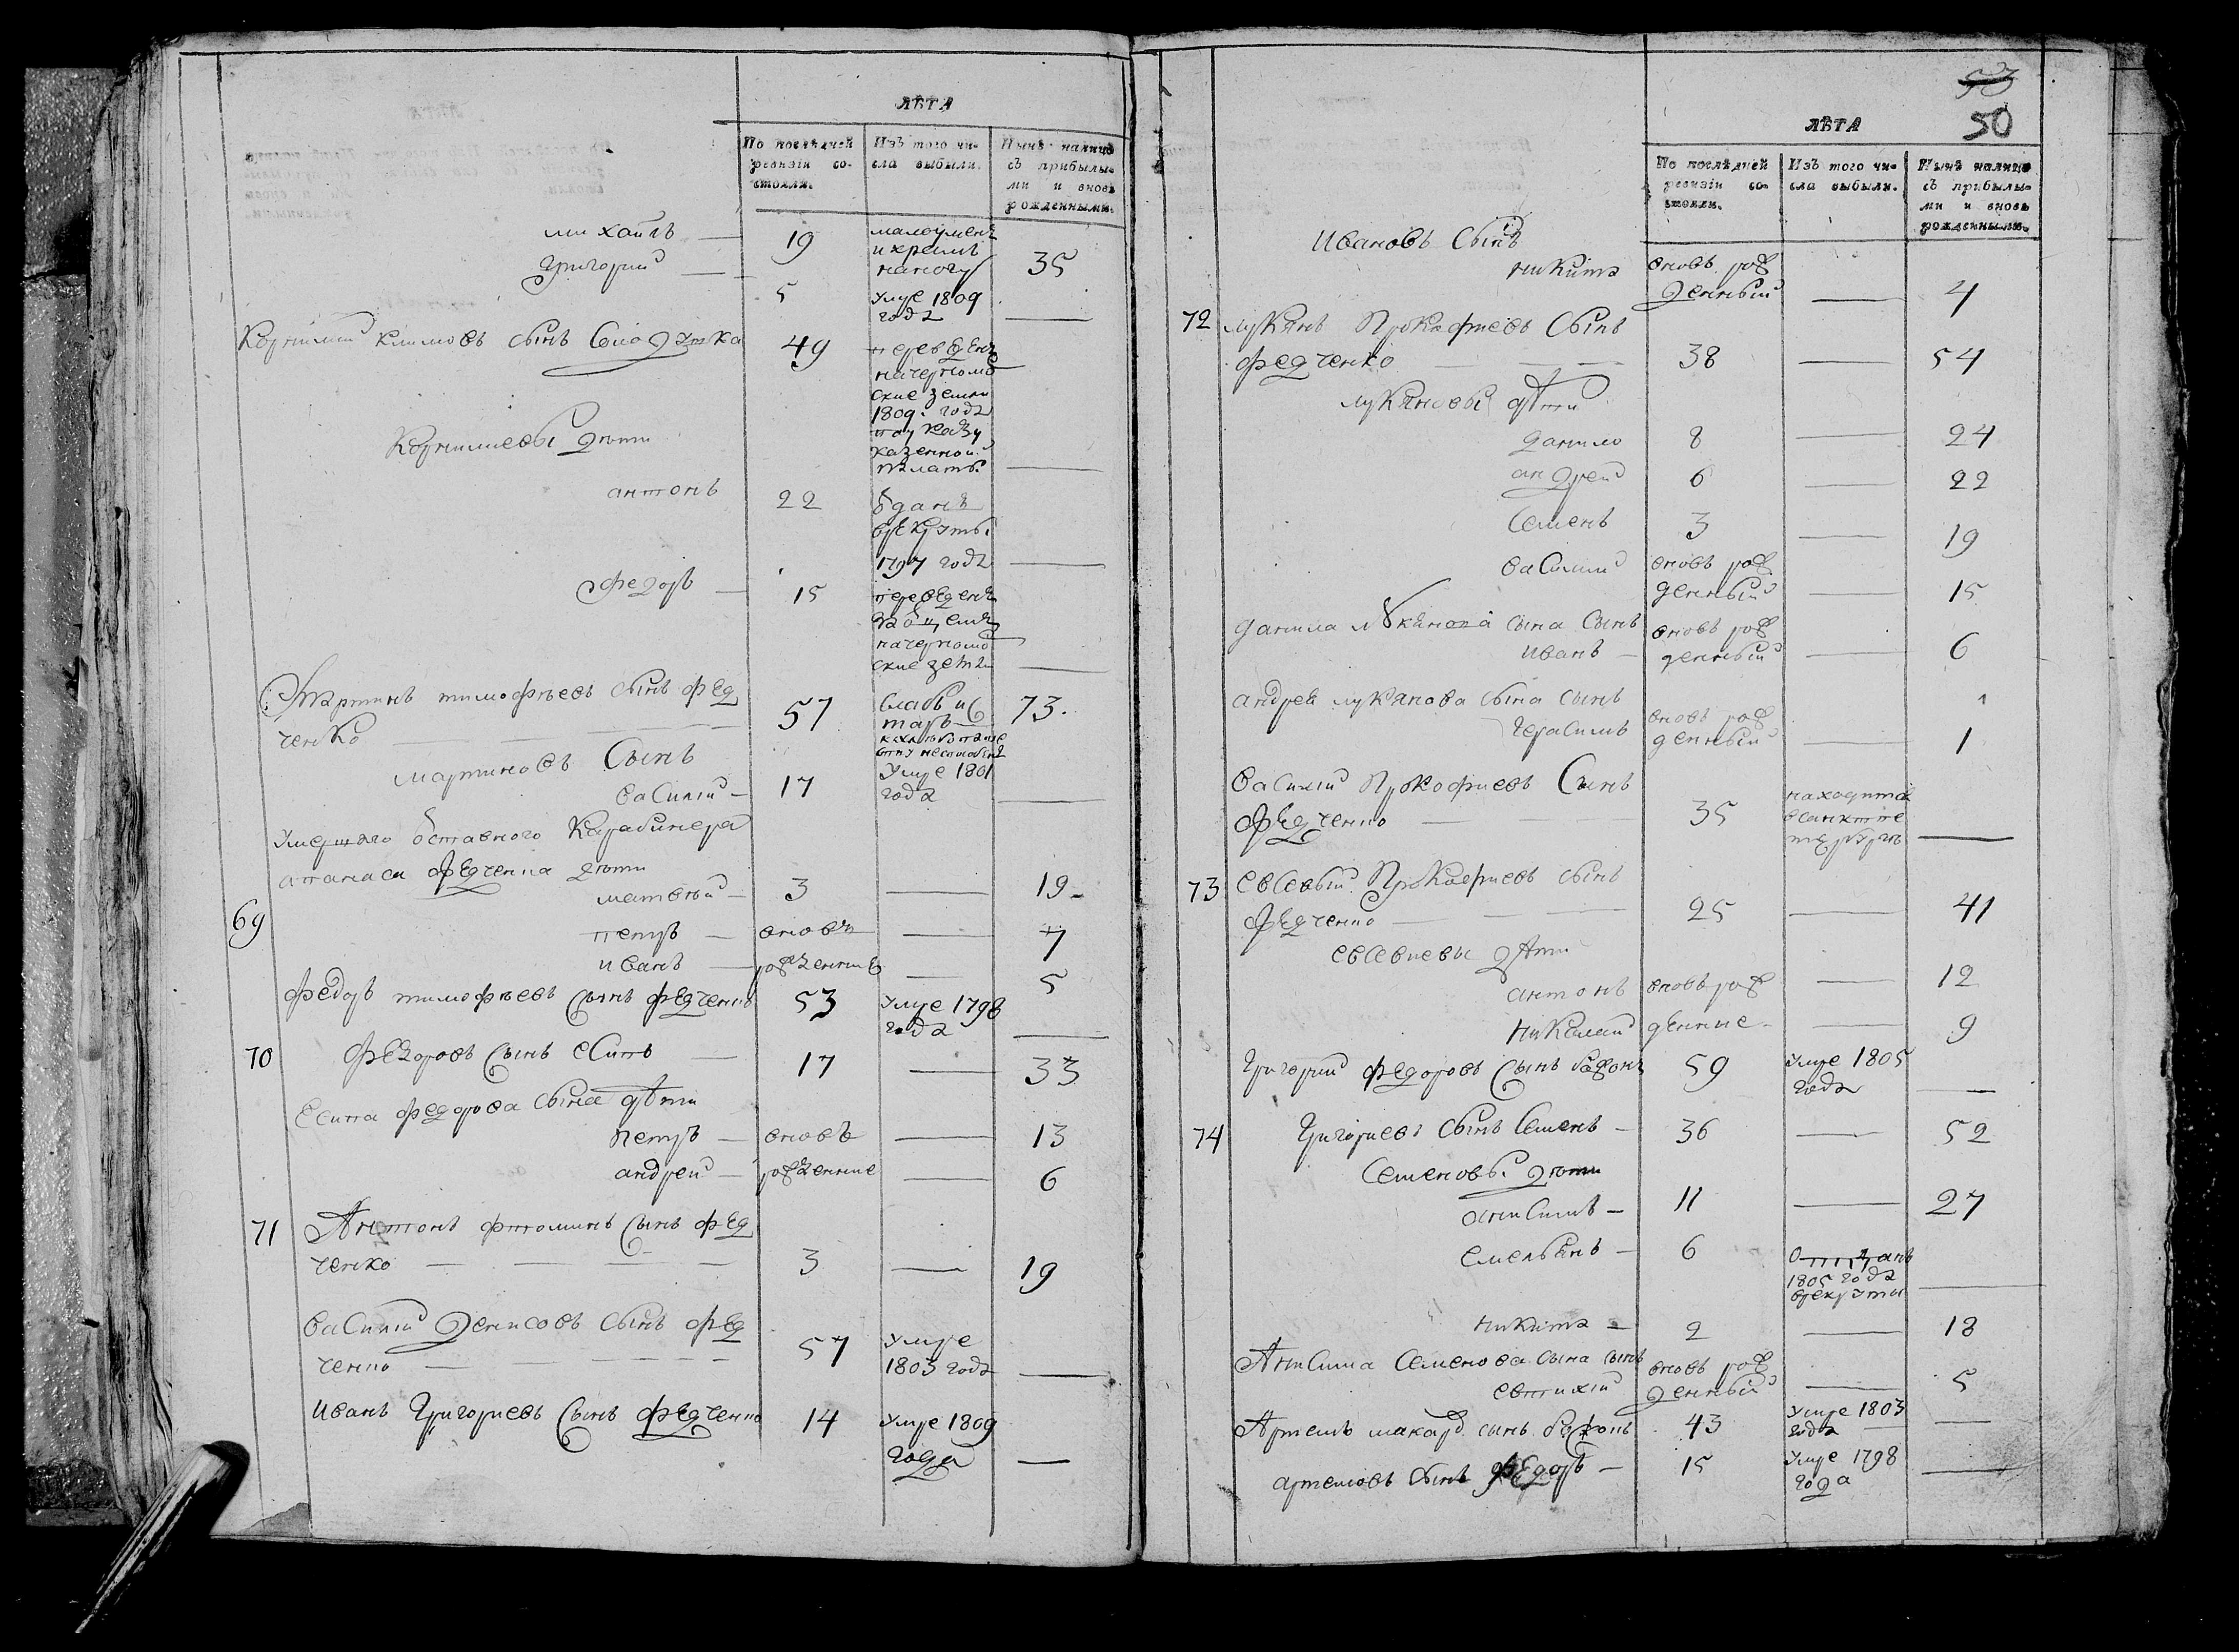 ЛѢТА
По послѣдней ревизіи состояли.
Изъ того числа выбыли.
Нынѣ налицо съ прибылыми и вновь рожденными.
михаилъ — 19 малоуменъ и хремъ на ногу 35
Григорий — 5 умре 1809 года —
Корнилий климовъ сынъ 49 переведенъ на черномо
ские земли
1809. года
по указу
казенной
палаты —
Корнилиевы дѣти
антонъ 22 Ѿданъ
врекруты
1797 года —
федоръ — 15 переведенъ
на черномо
ские земли —
Мартинъ тимофѣевъ сынъ фед
ченко — 57 слабъ и старъ 73.
мартиновъ Сынъ
василий — 17 Умре 1801
года —
Умершаго ѿставного Карабинера
апанаса федченка дѣти
матвѣй — 3 — 19
69
петръ — вновь — 7
иванъ — рожденние — 5
федоръ тимофѣевъ сынъ федченко 53 умре 1798
года —
70 федоровъ сынъ есипъ — 17 — 33
Есипа федорова сына дѣти
петръ — вновь — 13
андрей — рожденние — 6
71 Антонъ сынъ фед
ченко — 3 — 19
василий денисовъ сынъ фед
ченко — 57 умре
1803 года —
иванъ Григориевъ сынъ федченко 14 умре 1809
года —
50
ЛѢТА
По послѣдней ревизіи состояли.
Изъ того числа выбыли.
Нынѣ налицо съ прибылыми и вновь рожденными.
ивановъ сынъ
никита вновь рож
денный — 4
72 лукянъ Прокофиевъ сынъ
федченко — 38 — 54
лукяновы дѣти
данило 8 — 24
андрей 6 — 22
семенъ 3 — 19
василий вновь рож
денный — 15
данила лукянова сына сынъ вновь рож
иванъ — денный — 6
андрея лукянова сына сынъ
герасимъ вновь рож
денный — 1
василий Прокофиевъ Сынъ
федченко — 35 находится
всанктпе
тербургѣ —
73 евсевий Прокофиевъ сынъ
федченко — 25 — 41
евсевиевы дѣти
антонъ вновь рож — 12
николай денние — 9
Григорий федоровъ сынъ 59 умре 1805
года —
74 Григориевъ сынъ Семенъ — 36 — 52
Семеновы дѣти
анисимъ — 11 — 27
емельянъ — 6 Отданъ
1805 года
врекруты —
никита — 2 — 18
Анисима Семенова сына сынъ вновь рож
евтихий денный — 5
Артемъ макар. сынъ 43 умре 1803
года —
артемовъ сынъ федоръ — 15 умре 1798
года —